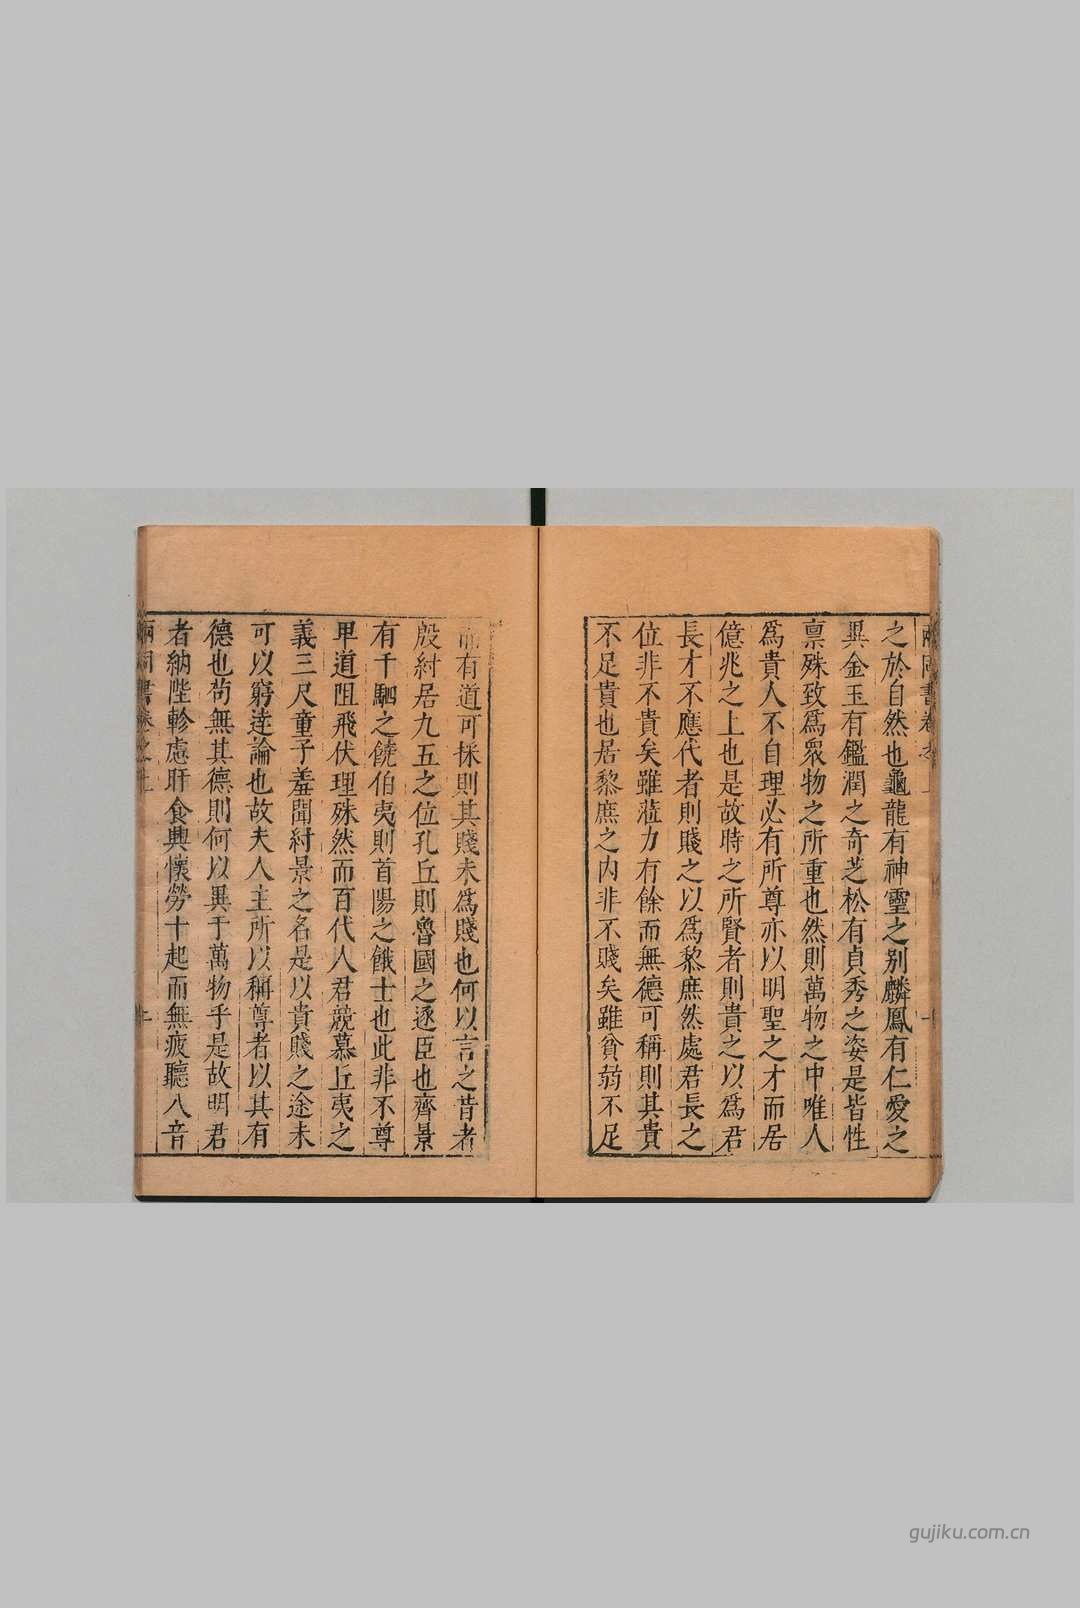 兩同書卷之上
之於自然也龜龍有神靈之别麟鳳有仁愛之
異金玉有鑑潤之奇芝松有貞秀之姿是皆性
禀殊致爲衆物之所重也然則萬物之中唯人
爲貴人不自理必有所尊亦以明聖之才而居
億兆之上也是故時之所賢者則貴之以爲君
長才不應代者則賤之以爲黎庶然處君長之
位非不貴矣雖蒞力有餘而無德可稱則其貴
不足貴也居黎庶之内非不賤矣雖貧弱不足
而有道可採則其賤未爲賤也何以言之昔者
殷紂居九五之位孔丘則魯國之逐臣也齊景
有千駟之饒伯夷則首陽之餓士也此非不尊
卑道阻飛伏理殊然而百代人君競慕丘夷之
義三尺童子羞聞紂景之名是以貴賤之途未
可以窮達論也故夫人主所以稱尊者以其有
德也苟無其德則何以異于萬物乎是故明君
者納陛軫慮旰食興懷勞十起而無疲聽八音
兩同書卷之上
gujiku.com.cn